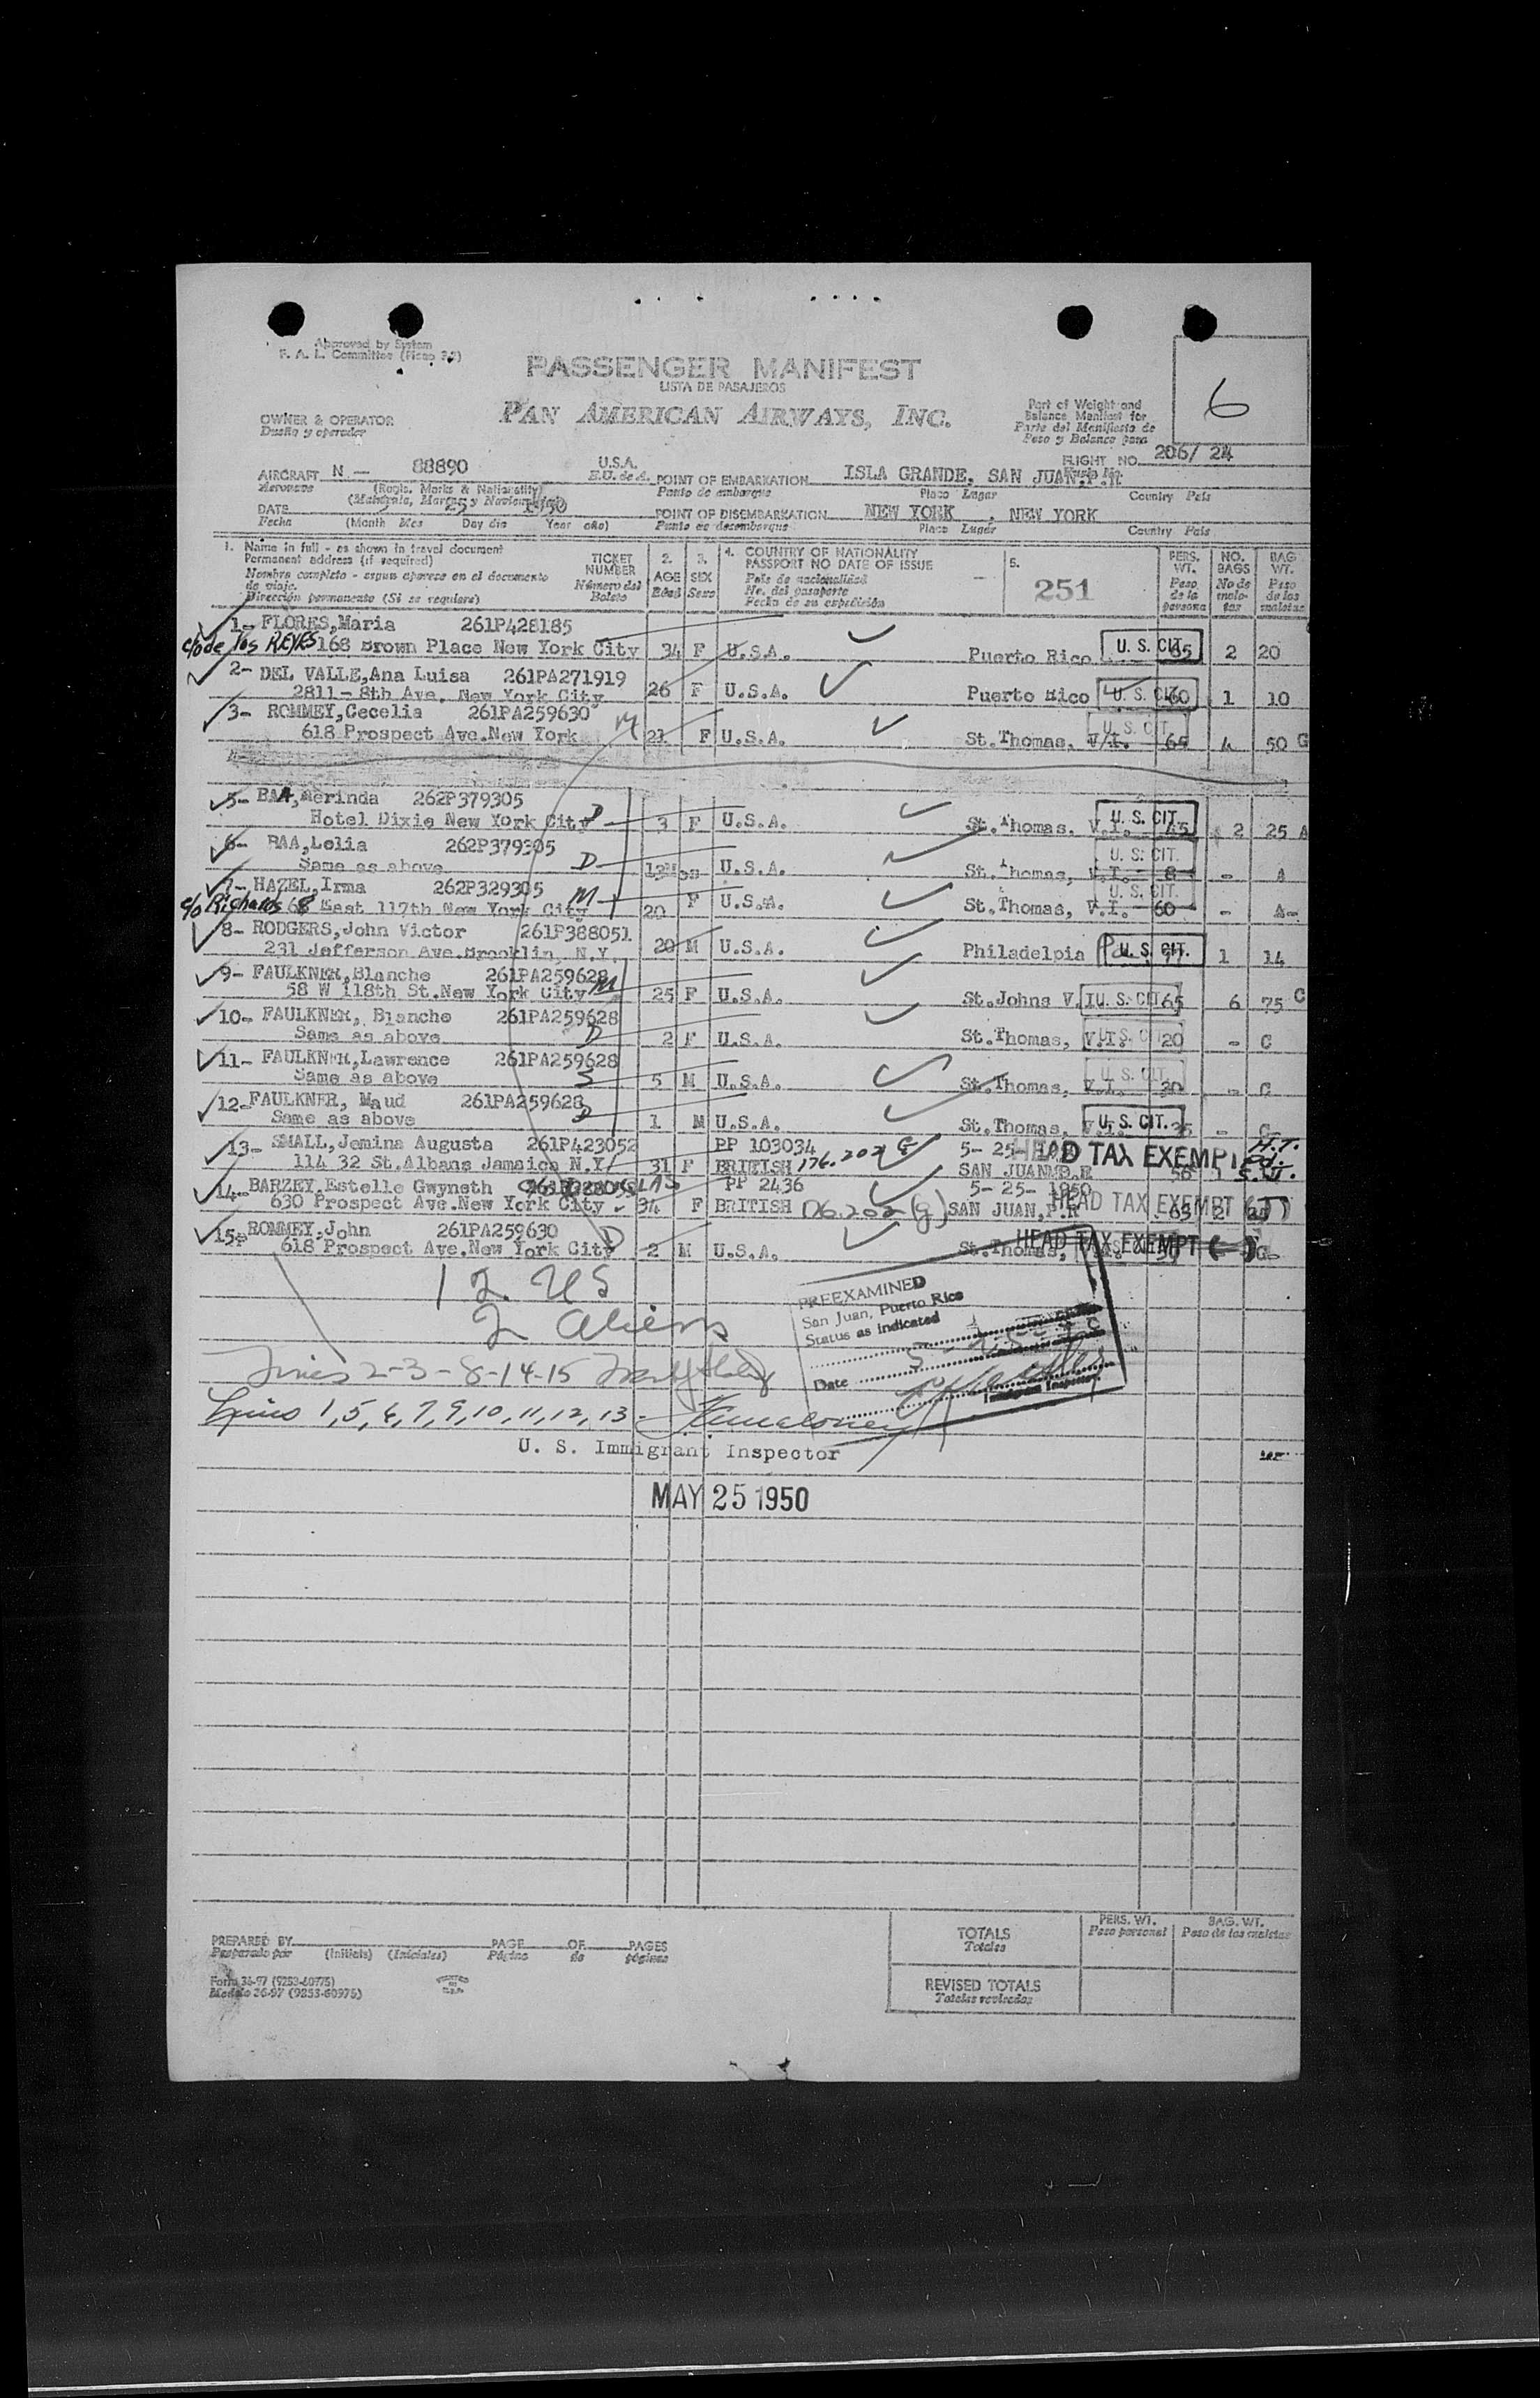 Approved by System
F. A. L. Committee
PASSENGER MANIFEST
LISTA DE PASAJEROS
6
OWNER & OPERATOR
Dueño y operador
PAN AMERICAN AIRWAYS, INC.
Part of Weight and
Balance Manifest for
Parte del Manifiesto de
Peso y Balance para
FLIGHT NO. 206/ 24
AIRCRAFT N — 88890
Aeronave (Regis. Marks & Nationality)
U.S.A.
E.U. de A.
POINT OF EMBARKATION ISLA GRANDE, SAN JUAN, P.R
Punto de embarque Place Lugar Country País
DATE 5 25 1950
Fecha (Month Mes Day día Year año)
POINT OF DISEMBARKATION NEW YORK , NEW YORK
Punto de desembarque Place Lugar Country País
1. Name in full - as shown in travel document
Permanent address (if required)
Nombre completo - segun aparece en el documento
de viaje.
Dirección permanente (Si se requiere)
TICKET
NUMBER
Número del
Boleto
2.
AGE
Edad
3.
SEX
Sexo
4. COUNTRY OF NATIONALITY
PASSPORT NO DATE OF ISSUE
País de nacionalidad
No. del pasaporte
Fecha de su expedición
5.
251
PERS.
WT.
Peso
de la
persona
NO.
BAGS
No de
male-
tas
BAG
WT.
Peso
de las
maletas
1- FLORES,Maria 261P428185
c/o de los REYES 168 Brown Place New York City 34 F U.S.A. Puerto Rico U. S. CIT. 2 20
2- DEL VALLE,Ana Luisa 261PA271919
2811- 8th Ave. New York City 26 F U.S.A. Puerto Rico U. S. CIT. 60 1 10
3- ROMMEY,Cecelia 261PA259630
618 Prospect Ave.New York M 21 F U.S.A. St.Thomas, V.I. U. S. CIT. 65 4 50 G
5- BAA,Merinda 262P379305
Hotel Dixie New York City D 3 F U.S.A. St.Thomas, V.I. U. S. CIT. 45 2 25 A
6- BAA,Lolia 262P379305
Same as above D U.S.A. St.Thomas, V.I. U. S. CIT. 8 - A
7- HAZEL,Irma 262P329305 M
c/o Richards 68 East 117th New York City 20 F U.S.A. St.Thomas, V.I. U. S. CIT. 60 - A-
8- RODGERS,John Victor 261P388051
231 Jefferson Ave.Brooklin, N.Y. 20 M U.S.A. Philadelpia Pa. U. S. CIT. 1 14
9- FAULKNER,Blanche 261PA259628
58 W 118th St.New York City M 25 F U.S.A. St.Johns V.I U. S. CIT. 65 6 75 C
10- FAULKNER, Blanche 261PA259628
Same as above D 2 F U.S.A. St.Thomas, V.I. U. S. CIT. 20 - C
11- FAULKNER,Lawrence 261PA259628
Same as above S 5 M U.S.A. St.Thomas, V.I. U. S. CIT. 30 - C
12- FAULKNER, Maud 261PA259628
Same as above D 1 M U.S.A. St.Thomas, V.I. U. S. CIT. - C-
13- SMALL,Jemina Augusta 261P423052 PP 103034 5- 25- HEAD TAX EXEMPT H.T.
114 32 St.Albans Jamaica N.Y. 31 F BRITISH 176.202 G SAN JUAN P.R
14- BARZEY,Estelle Gwyneth DOUGLAS PP 2436 5- 25- 1950
630 Prospect Ave.New York City 34 F BRITISH 176.202(g) SAN JUAN,P.R HEAD TAX EXEMPT 65 2
15- ROMMEY,John 261PA259630
618 Prospect Ave.New York City D 2 M U.S.A. St.Thomas, HEAD TAX EXEMPT
12 US
2 aliens
PREEXAMINED
San Juan, Puerto Rico
Status as indicated
Date
Immigrant Inspector
Lines 2-3-8-14-15
Lines 1,5,6,7,9,10,11,12,13-
U. S. Immigrant Inspector
MAY 25 1950
PREPARED BY
Preparado por (Initials) (Iniciales)
PAGE OF PAGES
Página de páginas
Form 36-97 (9253-60975)
Modelo 36-97 (9253-60975)
TOTALS
Totales
PERS. WT.
Peso personal
BAG. WT.
Peso de las maletas
REVISED TOTALS
Totales revisados